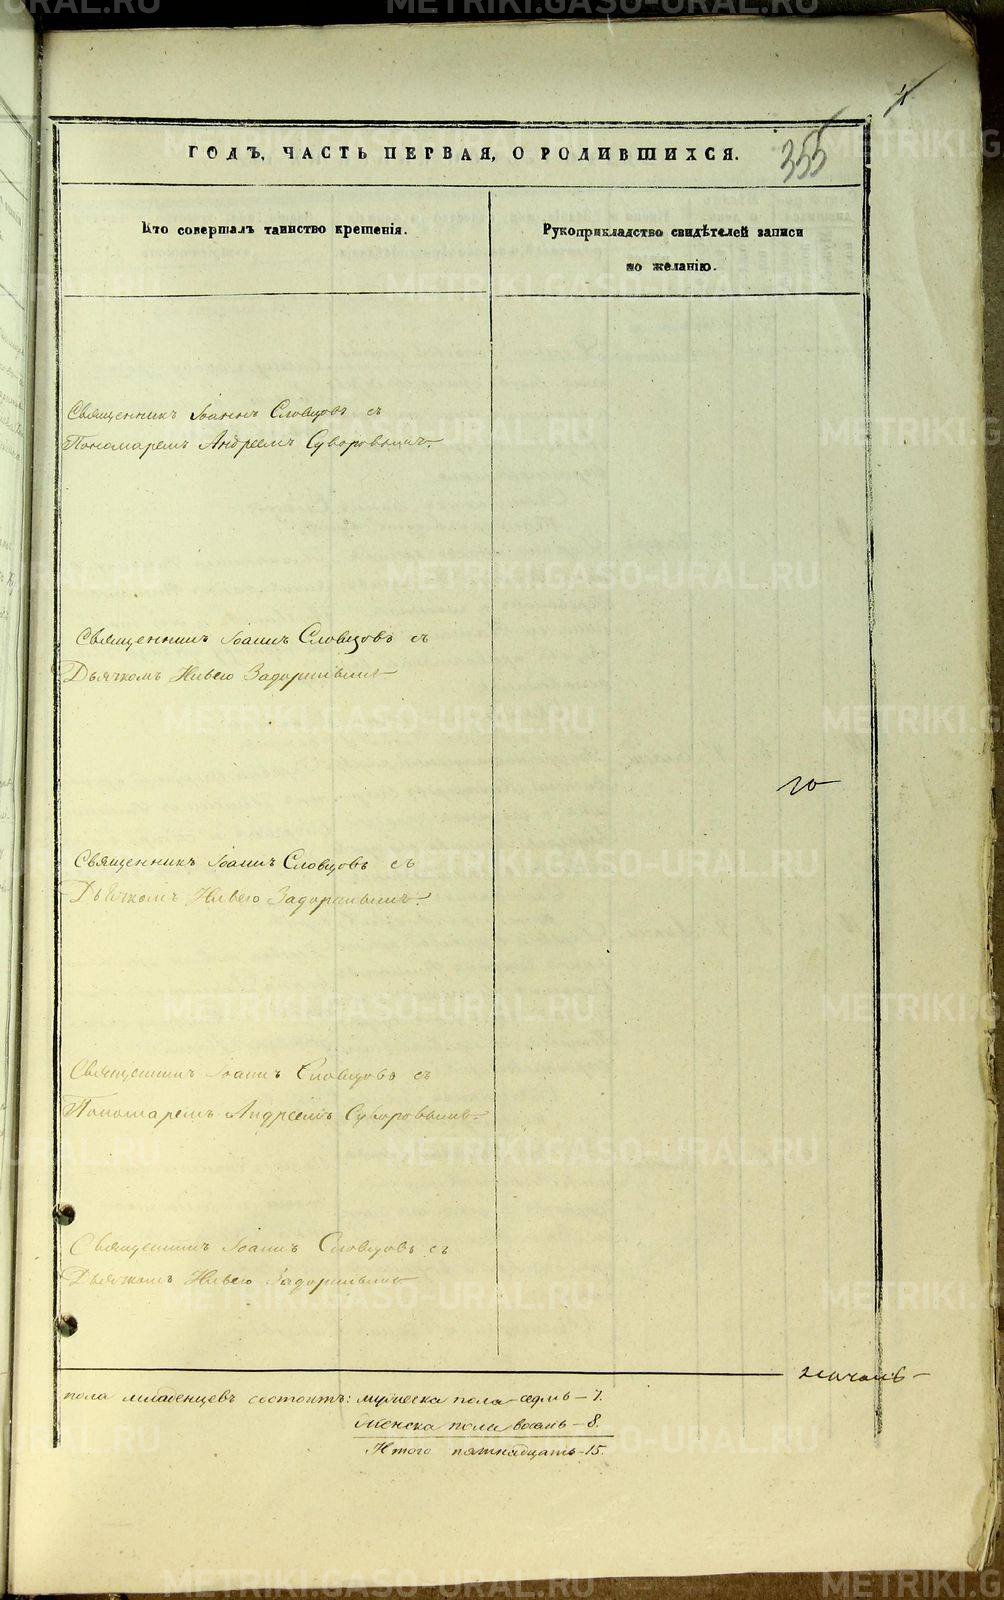 4
355
ГОДЪ, ЧАСТЬ ПЕРВАЯ, О РОДИВШИХСЯ.
Кто совершалъ таинство крещенія.
Рукоприкладство свидѣтелей записи
по желанію.
Священникъ Іоаннъ Словцовъ съ
Пономаремъ Андреемъ Суворовымъ
Священникъ Іоаннъ Словцовъ съ
Дьячкомъ Задоринымъ
Священникъ Іоаннъ Словцовъ съ
Дьячкомъ Задоринымъ
Священникъ Іоаннъ Словцовъ съ
Пономаремъ Андреемъ Суворовымъ
Священникъ Іоаннъ Словцовъ съ
Дьячкомъ Задоринымъ
пола младенцевъ состоитъ: мужеска пола седмь - 7.
Женска пола восемь - 8.
Итого пятнадцать - 15.
METRIKI.GASO-URAL.RU